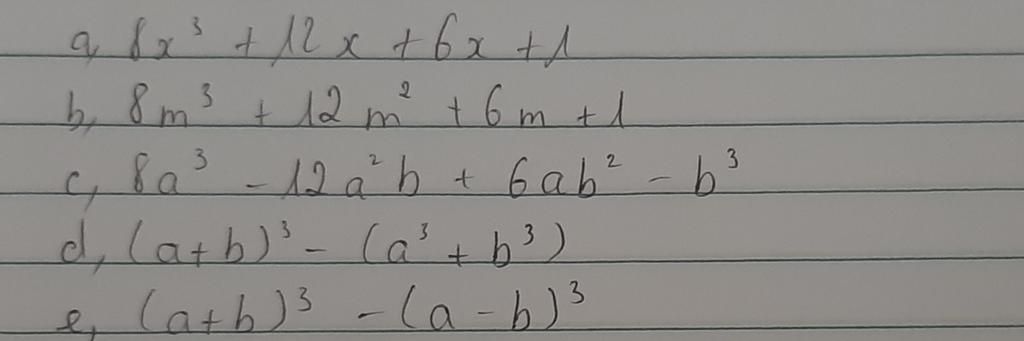 a, 8x³ + 12x + 6x + 1
b, 8m³ + 12m² + 6m + 1
c, 8a³ - 12a²b + 6ab² - b³
d, (a+b)³ - (a³ + b³)
e, (a+b)³ - (a - b)³